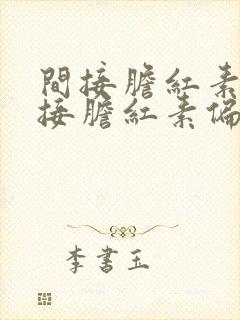 間接膽紅素
接膽紅素偏
李書玉